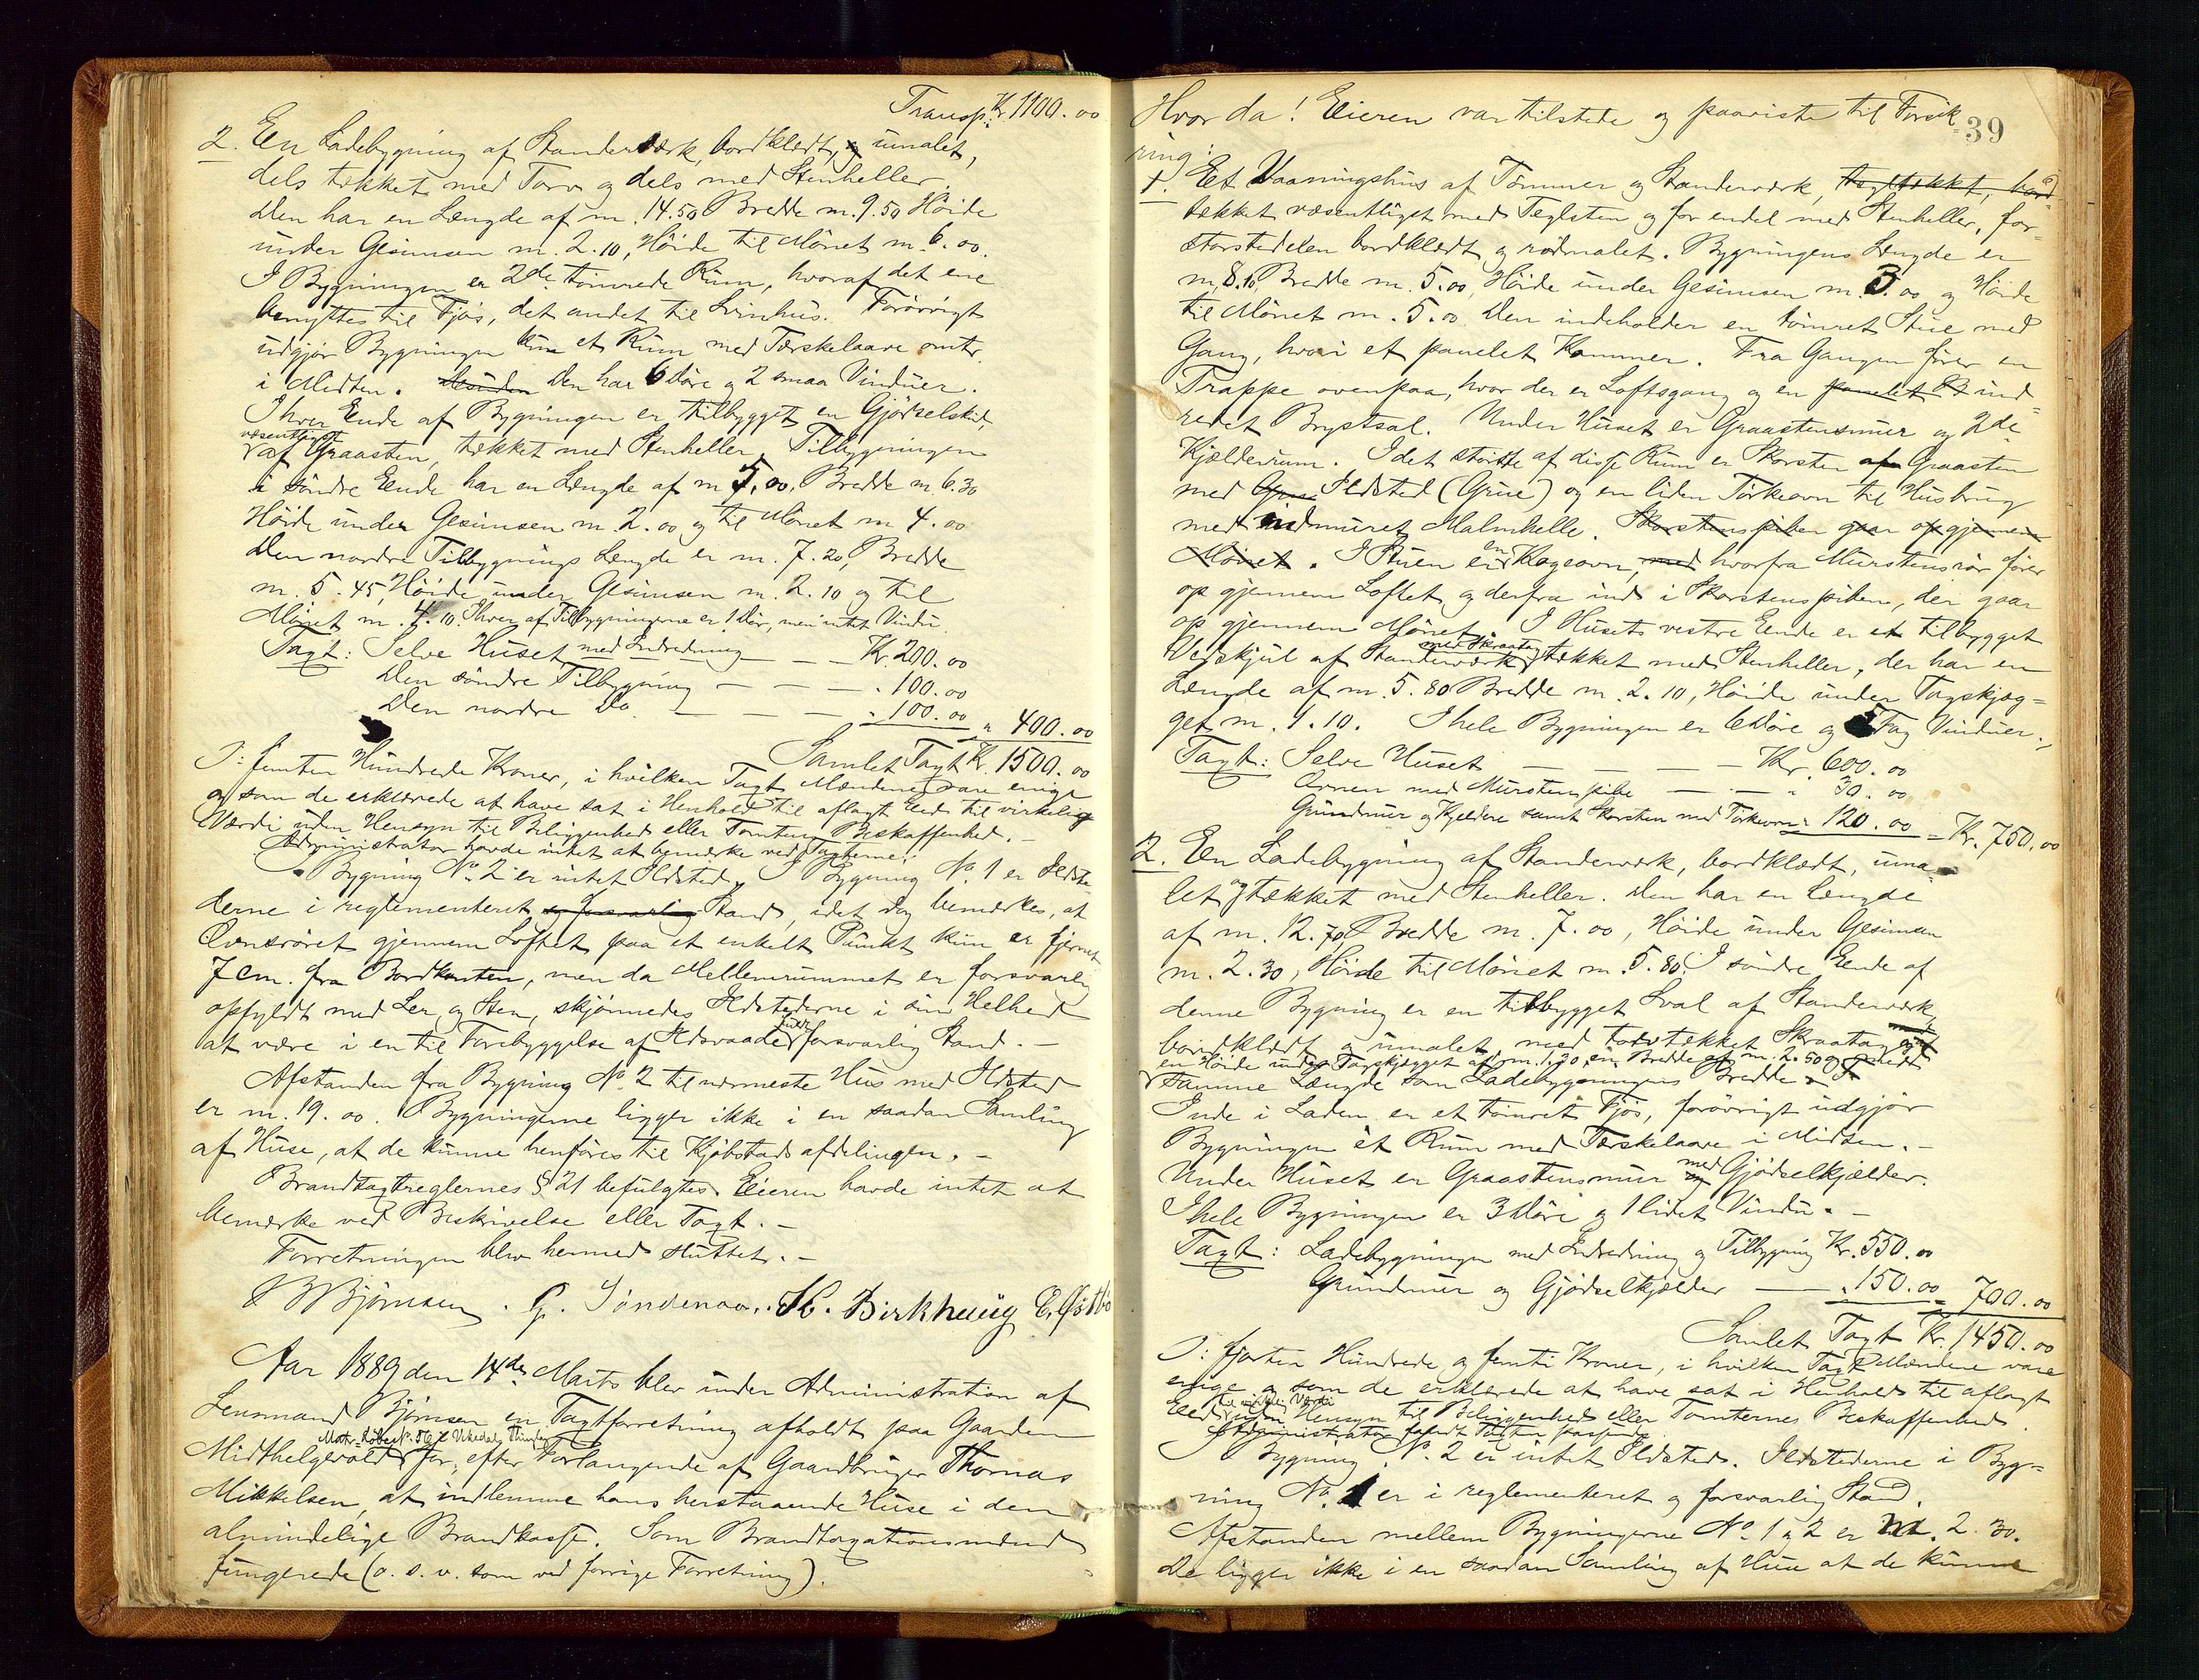 Transp. Kr. 1100.00
2. En Ladebygning af Standerværk, bordklædt, umalet,
dels tækket med Torv og dels med Stenheller.
Den har en Længde af m. 14.50 Bredde m. 9.50 Höide
under Gesimsen m. 2.10, Höide til Mönet m. 6.00.
I Bygningen er 2de tömrede Rum, hvoraf det ene
benyttes til Fjös, det andet til Svinhus. Forövrigt
udgjör Bygningen kun et Rum med Tærskelaave omtr.
i Midten. Den har 6 Döre og 2 smaa Vinduer.
I hver Ende af Bygningen er tilbygget en Gjödselskid
væsentligst
af Graasten, tækket med Stenheller. Tilbygningen
i söndre Ende har en Længde af m. 5.00, Bredde m. 6.30
Höide under Gesimsen m. 2.00 og til Mönet m. 4.00
Den nordre Tilbygnings Længde er m. 7.20, Bredde
m. 5.45, Höide under Gesimsen m. 2.10 og til
Mönet m. 4.10. I hver af Tilbygningerne er 1 Dör, men intet Vindu.
Taxt: Selve Huset med Indredning — — Kr. 200.00
Den söndre Tilbygning — — — " 100.00
Den nordre Do. — — — " 100.00 = " 400.00
Samlet Taxt Kr. 1500.00
I: femten Hundrede Kroner, i hvilken Taxt Mændene vare enige
og som de erklærede at have sat i Henhold til aflagt Eed til virkelig
Værdi uden Hensyn til Beliggenhed eller Tomtens Beskaffenhed. –
Administrator havde intet at bemærke ved Taxterne.
I Bygning No. 2 er intet Ildsted. I Bygning No. 1 er Ildste-
derne i reglementeret og forsvarlig Stand, idet dog bemærkes, at
Ovnsröret gjennem Loftet paa et enkelt Punkt kun er fjernet
7 cm. fra Bordkanten, men da Mellemrummet er forsvarlig
opfyldt med Ler og Sten, skjönnedes Ildstederne i sin Helhed
at være i en til Forebyggelse af Ildsvaade fuldt forsvarlig Stand. –
Afstanden fra Bygning No. 2 til nærmeste Hus med Ildsted
er m. 19.00. Bygningerne ligger ikke i en saadan Samling
af Huse, at de kunne henföres til Kjöbstadsafdelingen. –
Brandtaxtreglernes § 21 befulgtes. Eieren havde intet at
bemærke ved Beskrivelse eller Taxt. –
Forretningen blev hermed sluttet. –
B Björnsen. G. Söndenaa. H. Birkhaug E. Östbö
Aar 1889 den 14de Marts blev under Administration af
Lensmand Björnsen en Taxtforretning afholdt paa Gaarden
Matr. Löbe No. 56 Vikedals Thinglag
Midthelgevold for, efter Forlangende af Gaardbruger Thomas
Mikkelsen, at indlemme hans herstaaende Huse i den
almindelige Brandkasse. Som Brandtaxationsmænd
fungerede (o. s. v. som ved forrige Forretning).
39
Hvor da! Eieren var tilstede og paaviste til Forsik-
ring:
1. Et Vaaningshus af Tömmer og Standerværk, tegltækket, bord-
tækket væsentligst med Teglsten og for endel med Stenheller, for-
störstedelen bordklædt og rödmalet. Bygningens Længde er
m. 8.10, Bredde m. 5.00, Höide under Gesimsen m. 3.00 og Höide
til Mönet m. 5.00. Den indeholder en tömret Stue med
Gang, hvori et panelet Kammer. Fra Gangen förer en
Trappe ovenpaa, hvor der er Loftsgang og en panelet ind-
redet Brystsal. Under Huset er Graastensmur og 2de
Kjælderrum. I det störste af disse Rum er Skorsten af Graasten
med Ildsted (Grue) og en liden Törkeovn til Husbrug
med indmuret Malmhelle. Skorstenspiben gaar op gjennem
Mönet. I Stuen er en Kogeovn, med hvorfra Murstensrör förer
op gjennem Loftet og derfra ind i Skorstenspiben, der gaar
op gjennem Mönet. I Husets vestre Ende er et tilbygget
med Skraatag
Vedskjul af Standerværk, tækket med Stenheller, der har en
Længde af m. 5.80 Bredde m. 2.10, Höide under Tagskjæg-
get m. 1.10. I hele Bygningen er 6 Döre og 5 Fag Vinduer.
Taxt: Selve Huset — — — — Kr. 600.00
Ovnen med Murstenspibe — — — " 30.00
Grundmur og Kjeldere samt Skorsten med Törkeovn " 120.00 = Kr. 750.00
2. En Ladebygning af Standerværk, bordklædt, uma-
let og tækket med Stenheller. Den har en Længde
af m. 12.70, Bredde m. 7.00, Höide under Gesimsen
m. 2.30, Höide til Mönet m. 5.80. I söndre Ende af
denne Bygning er en tilbygget Sval af Standerværk,
bordklædt og umalet, med torvtækket Skraatag med
en Höide under Tagskjægget af m. 1.30, en Bredde af m. 2.50 og
samme Længde som Ladebygningens Bredde.
Inde i Laden er et tömret Fjös, forövrigt udgjör
Bygningen ét Rum med Tærskelaave i Midten. –
Under Huset er Graastensmur med Gjödselkjælder.
I hele Bygningen er 3 Döre og 1 lidet Vindu. –
Taxt: Ladebygningen med Indredning og Tilbygning Kr. 550.00
Grundmur og Gjödselkjælder — " 150.00 = 700.00
Samlet Taxt Kr. 1450.00
I: fjorten Hundrede og femti Kroner, i hvilken Taxt Mændene vare
enige og som de erklærede at have sat i Henhold til aflagt
til virkelig Værdi
Eed uden Hensyn til Beliggenhed eller Tomternes Beskaffenhed.
Administrator fandt Taxten passende.
I Bygning No. 2 er intet Ildsted. Ildstederne i Byg-
ning No. 1 er i reglementeret og forsvarlig Stand.
Afstanden mellem Bygningerne No. 1 og 2 er m. 2.30.
De ligger ikke i en saadan Samling af Huse at de kunne